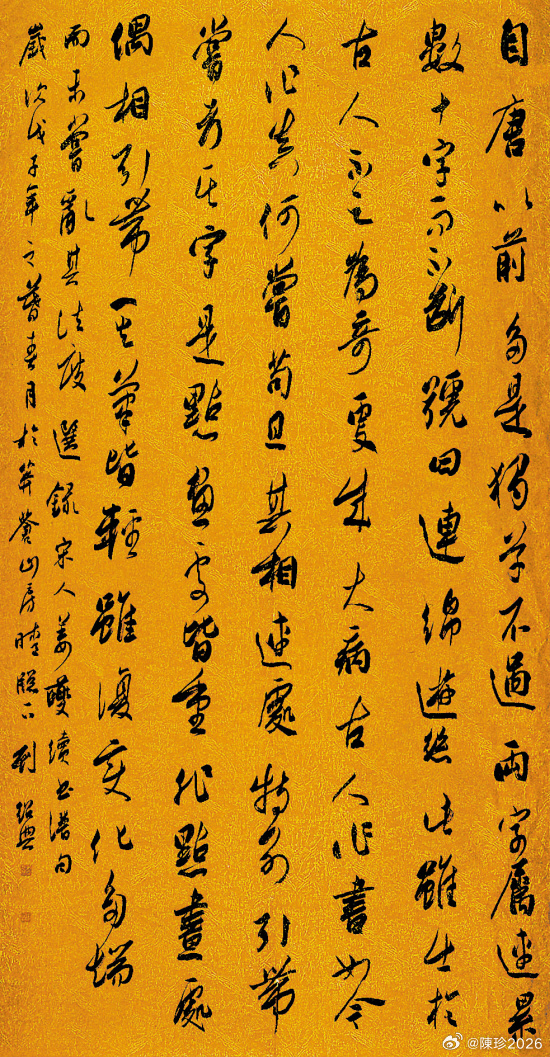 自唐以前多是獨草不過兩字屬連累
數十字而不斷號曰連綿遊絲此雖出於
古人不足為奇更成大病古人作書如今
人作真何嘗苟且其相連處特別引帶
嘗考其字是點畫處皆重非點畫處
偶相引帶其筆皆輕雖復變化多端
而未嘗亂其法度 選錄宋人姜夔續書譜句
歲次戊子年之暮春月於莽蒼山房晴牕下 劉紹典
@陳珍2026